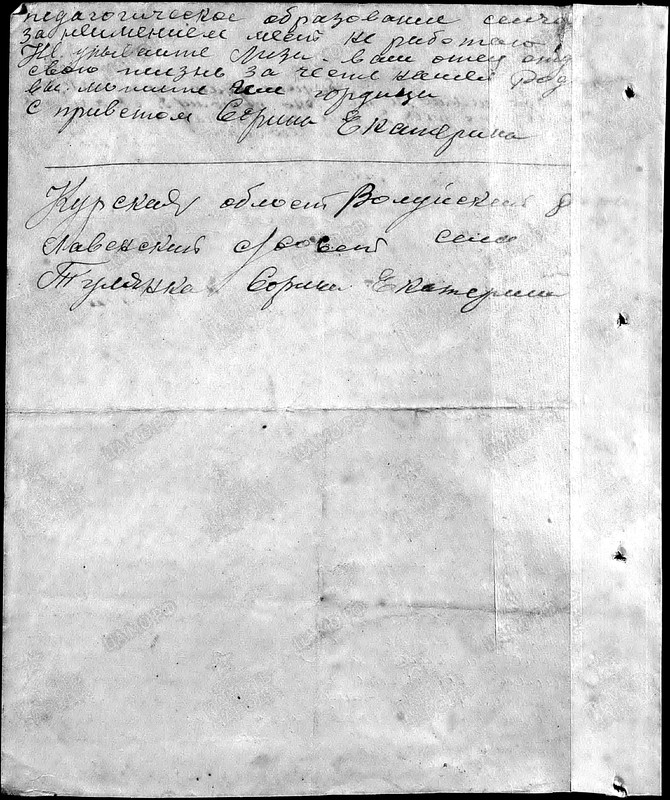 педагогическое образование сейча
за неимением мест не работаю
Не унывайте Лиза. ваш отец отд
свою жизнь за честь нашей Род
вы можите им гордица
с приветом Серина Екатерина
Курская област Волуйский р
лавенский с/совет село
Тулянка Екатерина